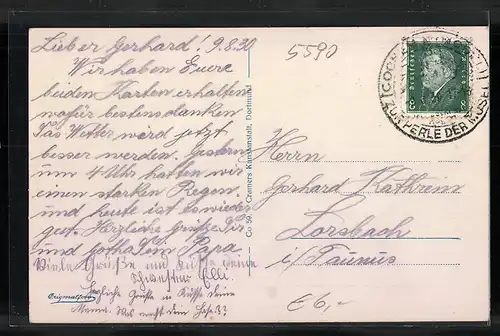 Lieber Gerhard! 9.8.30
Wir haben Eure
beiden Karten erhalten
wofür bestens danken
Das Wetter werd jetzt
besser werden. Gestern
um 4 Uhr hatten wir
einen starken Regen
und heute ist es wieder
gut. Herzliche Grüße Dir
und Papa
Viele Grüße und Küsse deine
Schwester Elli.
Herzliche Grüße u. Küsse deine
Mama. Was macht der
Originalfoto
Co 59. Cramers Kunstanstalt, Dortmund
5590
DEUTSCHES
8
8
COCHEM
ZUR PERLE DER MOSEL
Herrn
Gerhard Kathrein
Lorsbach
i/Taunus
€6,-